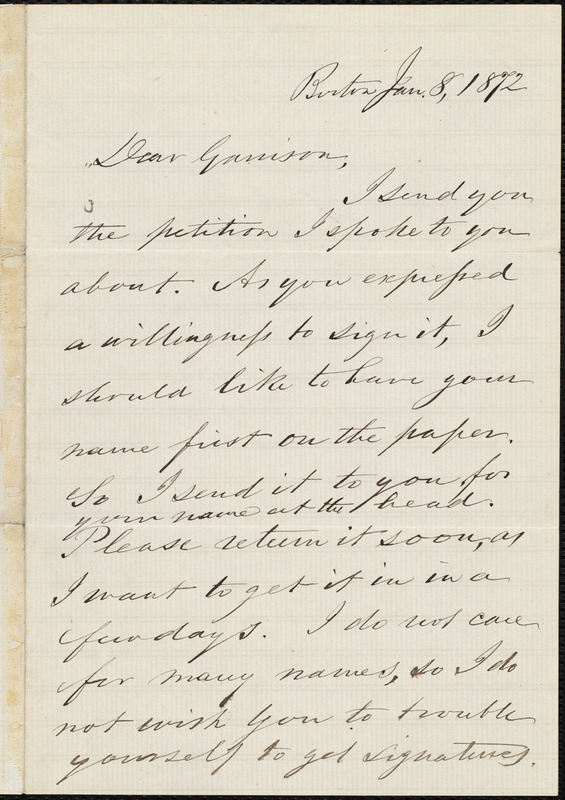 Boston Jan. 8, 1872
Dear Garrison,
I send you
the petition I spoke to you
about. As you expressed
a willingness to sign it, I
should like to have your
name first on the paper.
So I send it to you for
your name at the head.
Please return it soon, as
I want to get it in in a
few days. I do not care
for many names, so I do
not wish you to trouble
yourself to get signatures.